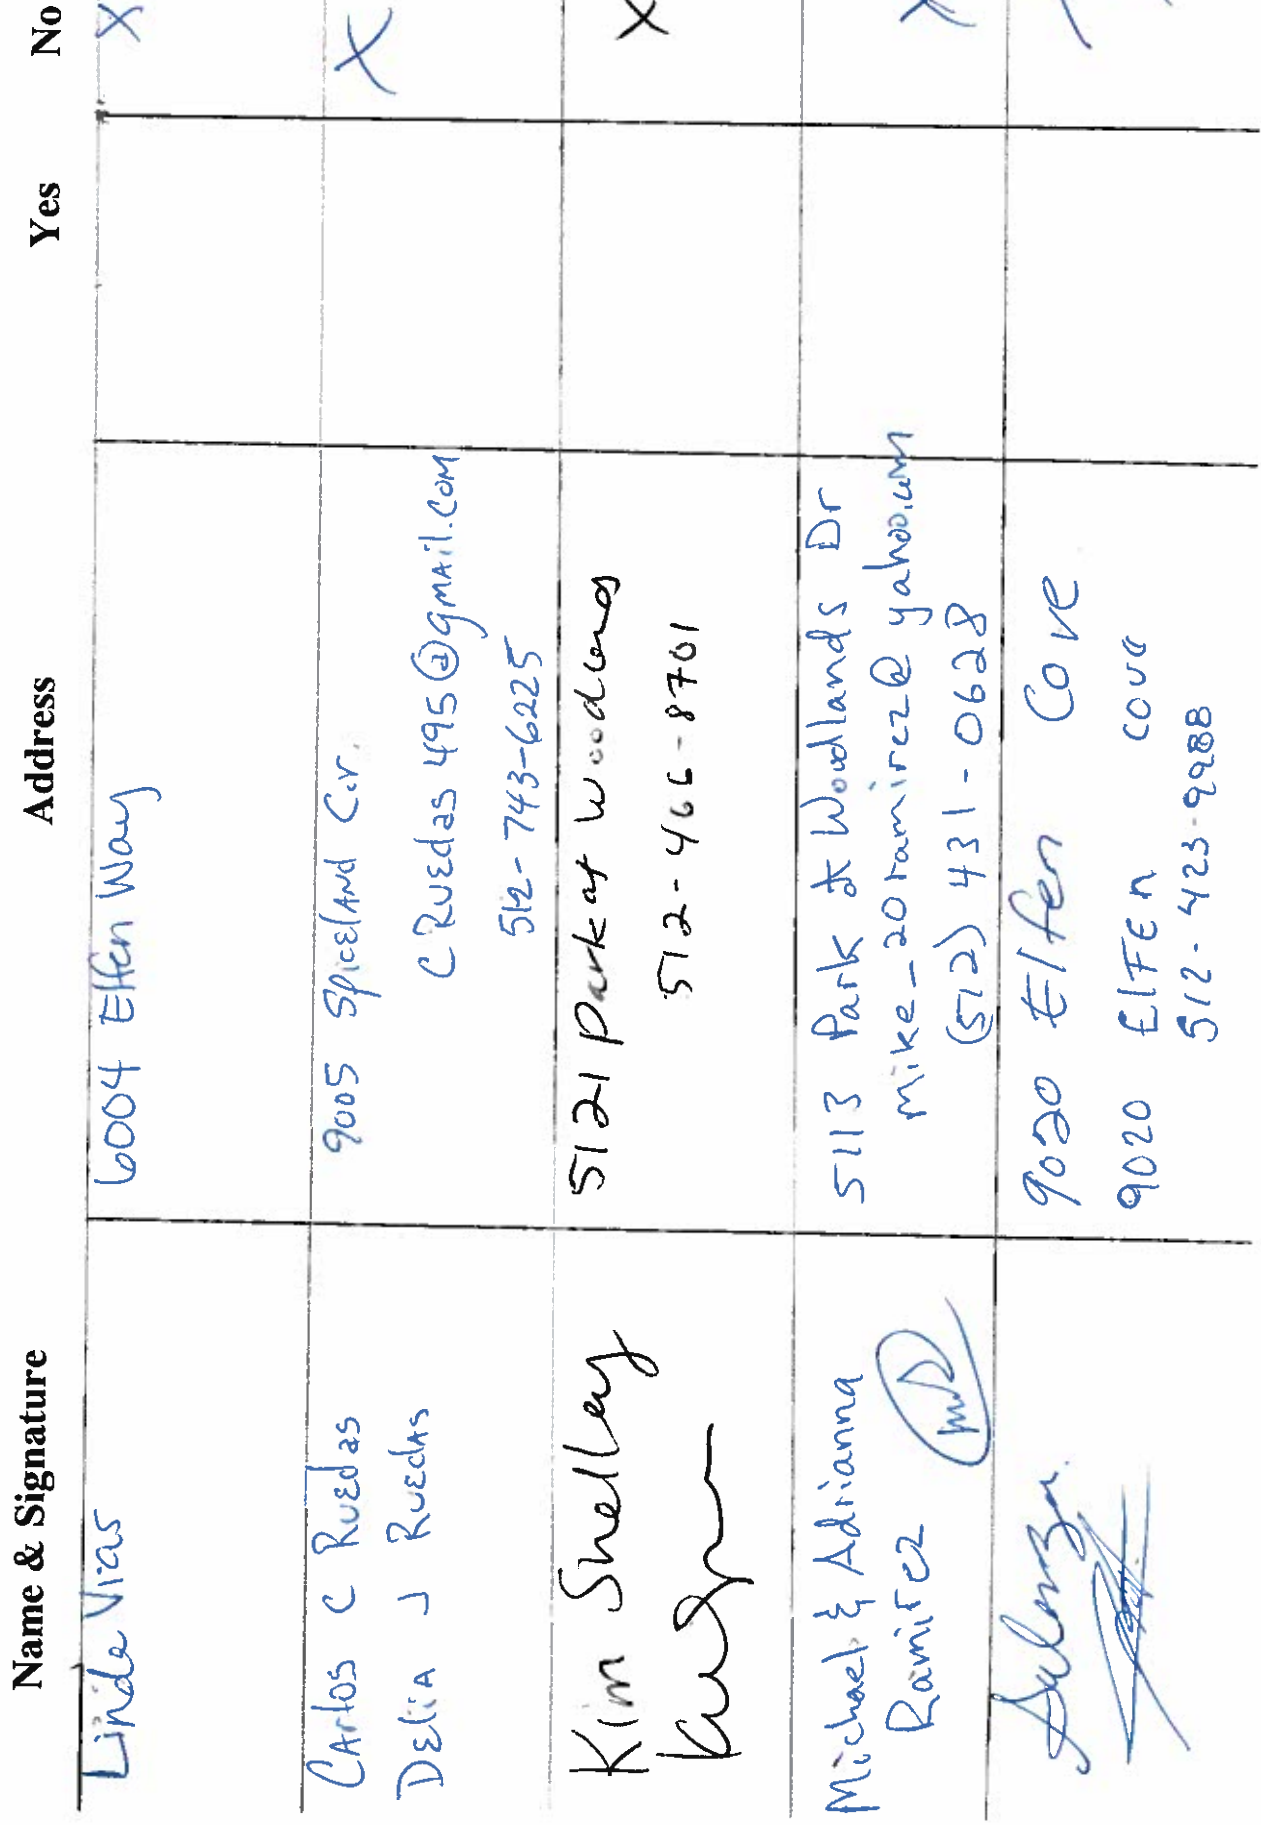 Name & Signature Address Yes No
Linda Vias 6004 Elfen Way X
Carlos C Ruedas 9005 Spiceland Cir. X
Delia J Ruedas CRuedas495@gmail.com
512-743-6225
Kim Shelley 5121 Park at Woodland X
512-466-8701
Michael & Adrianna 5113 Park at Woodlands Dr X
Ramirez mike_20ramirez@yahoo.com
(512) 431-0628
9020 Elfen Cove
9020 Elfen cove
512-423-9988